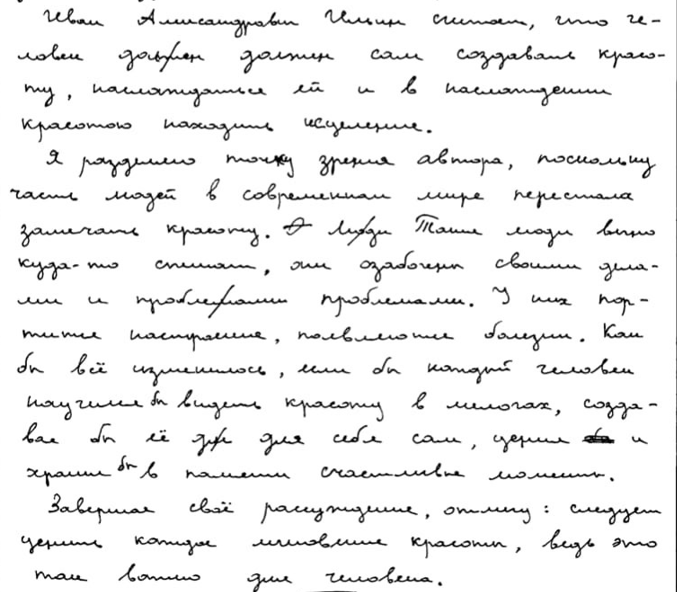 Иван Александрович Ильин считает, что че-
ловек должен должен сам создавать красо-
ту, наслаждаться ей и в наслаждении
красотою находить исцеление.
Я разделяю точку зрения автора, поскольку
часть людей в современном мире перестала
замечать красоту. Люди Такие люди вечно
куда-то спешат, они озабочены своими дела-
ми и проблемами проблемами. У них пор-
тится настроение, появляются болезни. Как
бы всё изменилось, если бы каждый человек
научился бы видеть красоту в мелочах, созда-
вал бы её для себя сам, ценил и
хранил бы в памяти счастливые моменты.
Завершая своё рассуждение, отмечу: следует
ценить каждое мгновение красоты, ведь это
так важно для человека.